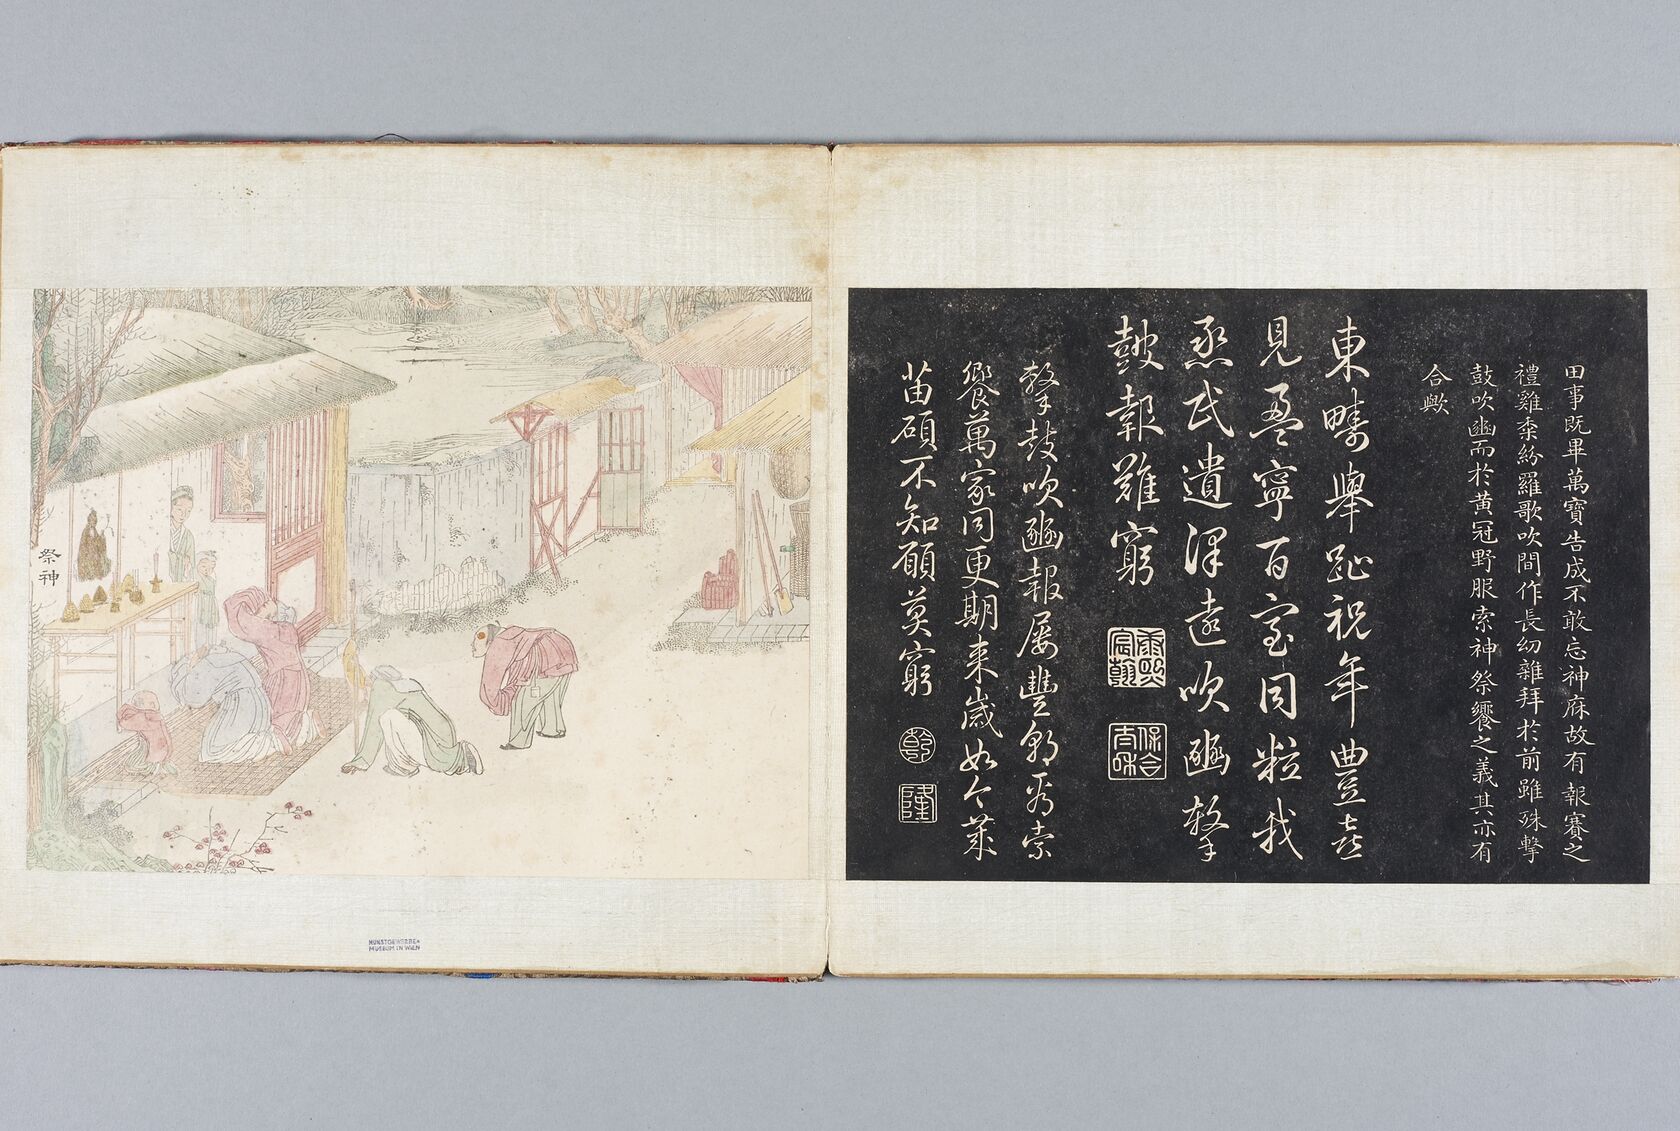 田事既畢萬寶告成不敢忘神庥故有報賽之
禮雞黍紛羅歌吹間作長幼雜拜於前雖殊擊
鼓吹豳而於黃冠野服索神祭饗之義其亦有
合歟
東疇舉趾祝年豊喜
見盈寧百室同粒我
烝民遺澤遠吹豳擊
鼓報難窮
康熙宸翰
保合太和
擊鼓吹豳報屢豐索
饗萬家同更期來歲如今
苗碩不知願莫窮
乾
隆
祭神
KUNSTGEWERBE
MUSEUM IN WIEN